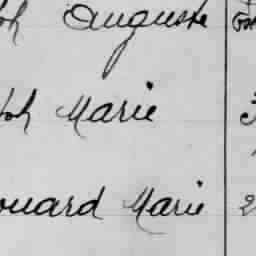 Auguste
Marie
ouard Marie 2